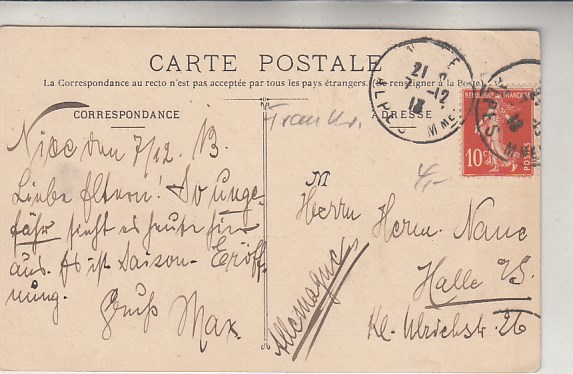 CARTE POSTALE
La Correspondance au recto n'est pas acceptée par tous les pays étrangers. (Se renseigner à la Poste)
CORRESPONDANCE
Nice den 7/12. 13.
Liebe Eltern! So unge-
fähr sieht es heute hier
aus. Es ist Saison-Eröff-
nung.
Gruß Max.
ADRESSE
M
4,-
Herrn Herm.
Halle a/S.
Kl. Ulrichstr. 26
Allemagne
21
7-12
13
ALPES MME
REPUBLIQUE FRANÇAISE
10c
POSTES